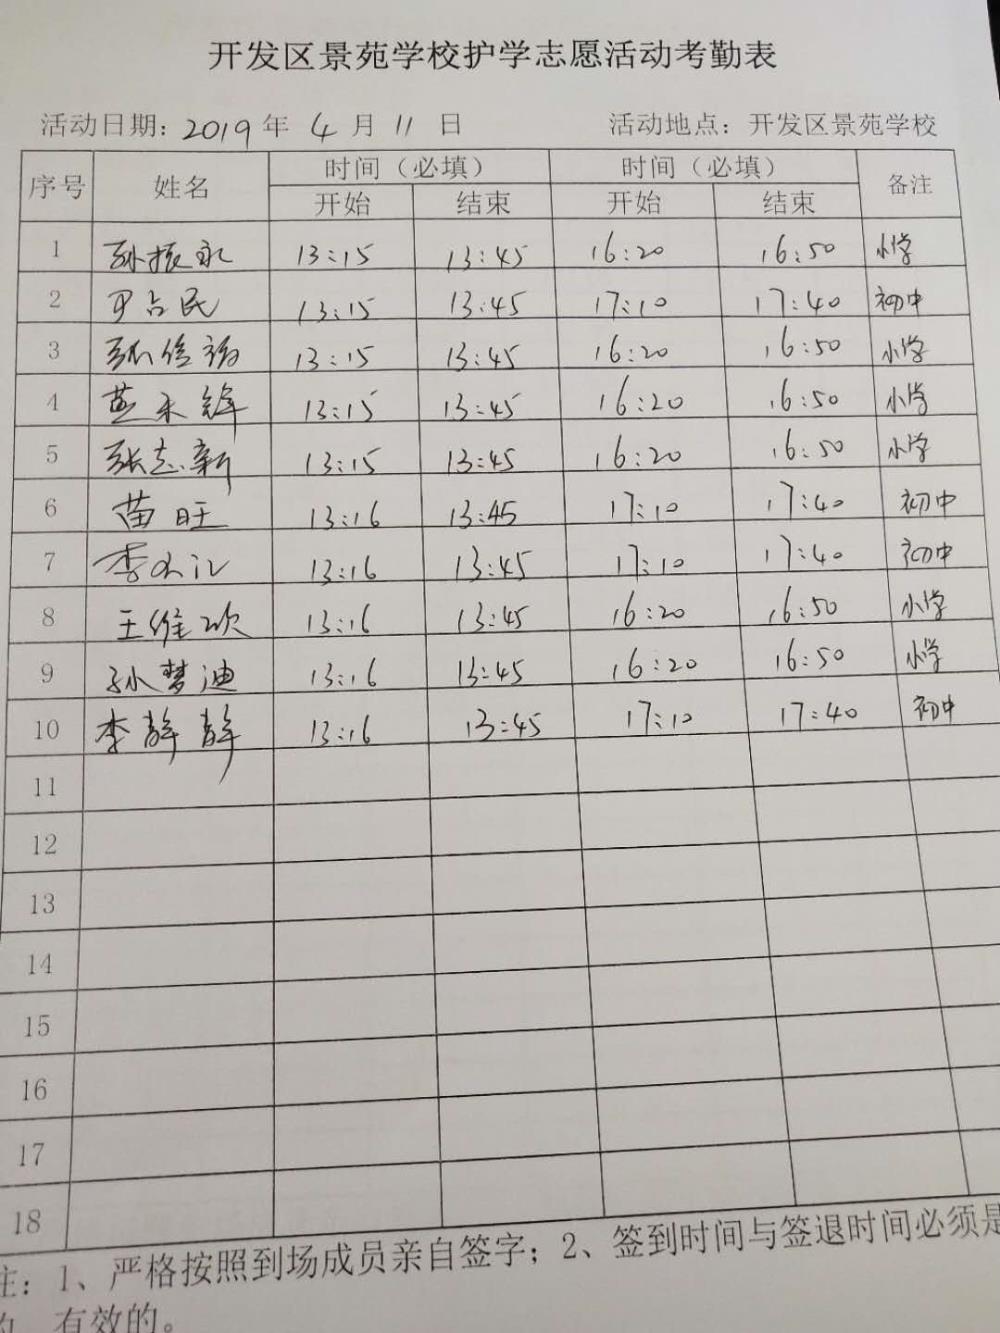 开发区景苑学校护学志愿活动考勤表
活动日期: 2019 年 4 月 11 日 活动地点: 开发区景苑学校
序号 姓名 时间（必填） 时间（必填） 备注
开始 结束 开始 结束
1 孙振永 13:15 13:45 16:20 16:50 小学
2 尹占民 13:15 13:45 17:10 17:40 初中
3 13:15 13:45 16:20 16:50 小学
4 13:15 13:45 16:20 16:50 小学
5 张志新 13:15 13:45 16:20 16:50 小学
6 苗旺 13:16 13:45 17:10 17:40 初中
7 李 13:16 13:45 17:10 17:40 初中
8 王维欢 13:16 13:45 16:20 16:50 小学
9 孙梦迪 13:16 13:45 16:20 16:50 小学
10 李静静 13:16 13:45 17:10 17:40 初中
11
12
13
14
15
16
17
18
注: 1、严格按照到场成员亲自签字; 2、签到时间与签退时间必须是
的 有效的。